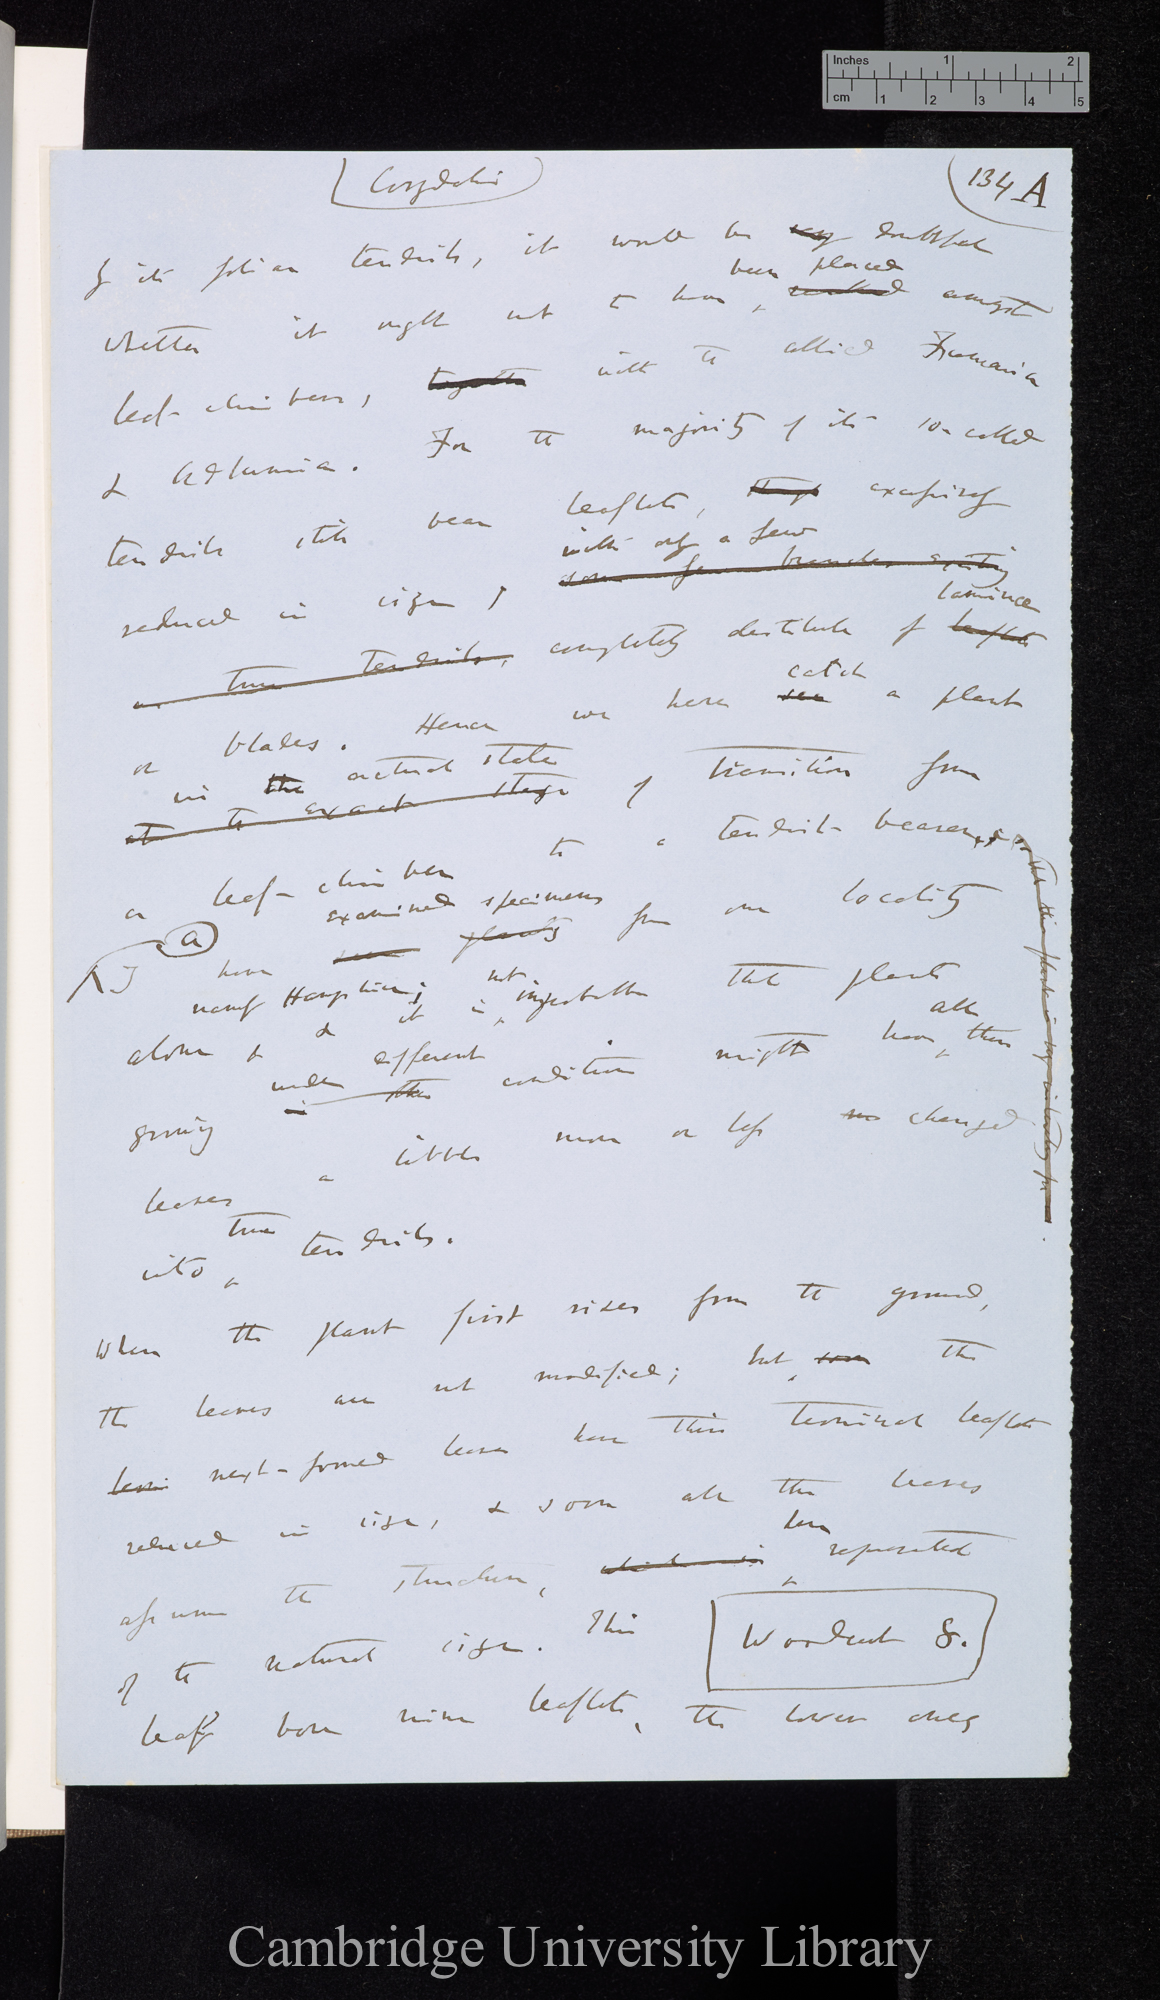 Inches 1 2
cm 1 2 3 4 5
Corydalis
134 A
of its foliar tendrils, it would be very doubtful
been placed
whether it ought not to have ranked amongst
leaf-climbers, together with the allied Fumaria
& Adlumia. For the majority of its so called
tendrils still bear leaflets, though excessively
with only a few
reduced in size; some few branches existing
laminæ
as true tendrils, completely destitute of leaflets
catch
or blades. Hence we here see a plant
in the actual state
at the exact stage of transition from
a leaf-climber to a tendril-bearer
examined specimens
(a)
I have seen plants from one locality
namely Hampshire; not
alone & & it is improbable that plants
under different all
growing in the conditions might have their
leaves a little more or less changed
true
into tendrils.
When the plant first rises from the ground,
the leaves are not modified; but soon the
next-formed leaves have their terminal leaflets
reduced in size, & soon all the leaves
here
assume the structure, which is represented
of the natural size. This
Woodcut 8.
leaf bore nine leaflets, the lower ones
Cambridge University Library